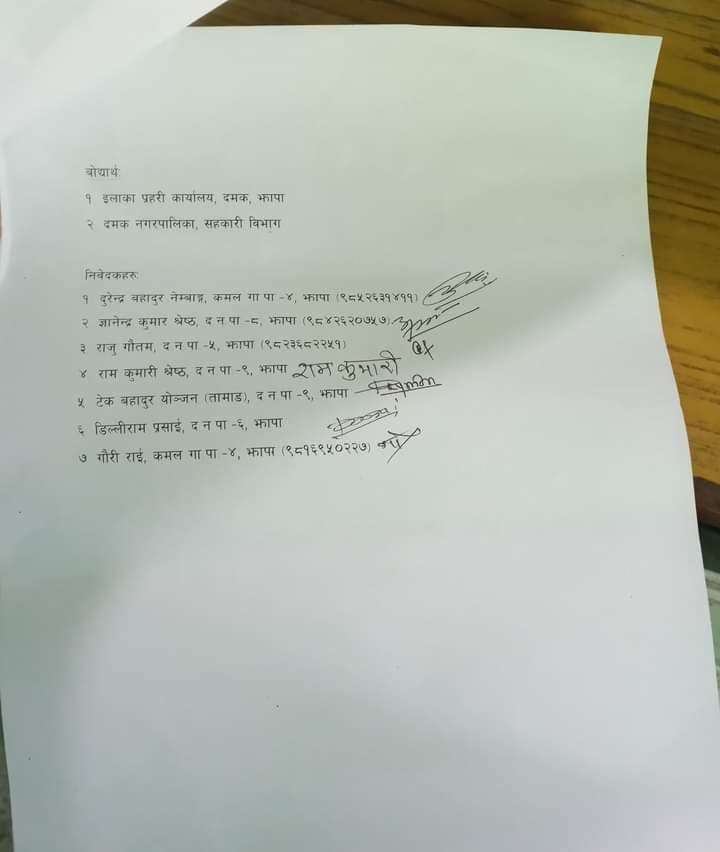 बोधार्थ:
१ इलाका प्रहरी कार्यालय, दमक, झापा
२ दमक नगरपालिका, सहकारी विभाग
निवेदकहरु:
१ दुरेन्द्र बहादुर नेम्बाङ्ग, कमल गा पा -४, झापा (९८५२६३१४११)
२ ज्ञानेन्द्र कुमार श्रेष्ठ, द न पा -८, झापा (९८४२६२०७५७)
३ राजु गौतम, द न पा -५, झापा (९८२३६८२२५१)
४ राम कुमारी श्रेष्ठ, द न पा -९, झापा राम कुमारी
५ टेक बहादुर योञ्जन (तामाङ), द न पा -९, झापा
६ डिल्लीराम प्रसाई, द न पा -६, झापा
७ गौरी राई, कमल गा पा -४, झापा (९८१६९५०२२७)